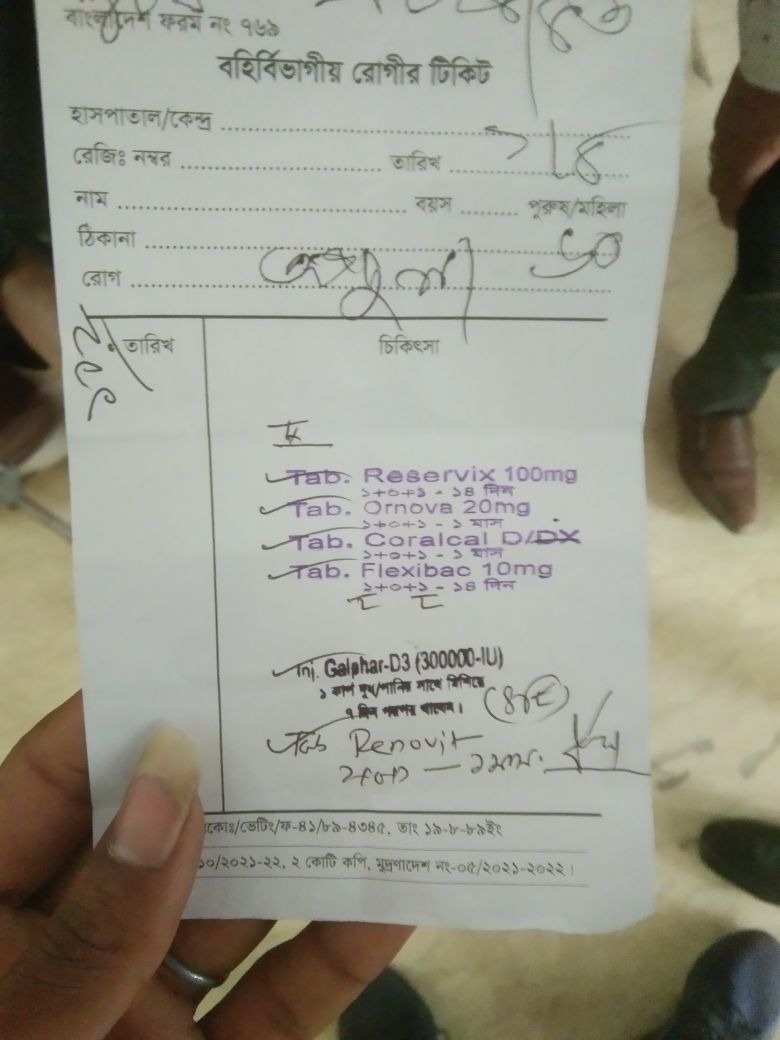 বাংলাদেশ ফরম নং ৭৬৯
বহির্বিভাগীয় রোগীর টিকিট
হাসপাতাল/কেন্দ্র
রেজিঃ নম্বর তারিখ
নাম বয়স পুরুষ/মহিলা
ঠিকানা
রোগ
তারিখ চিকিৎসা
Tab. Reservix 100mg
১+০+১ - ১৪ দিন
Tab. Ornova 20mg
১+০+১ - ১ মাস
Tab. Coralcal D/DX
১+০+১ - ১ মাস
Tab. Flexibac 10mg
১+০+১ - ১৪ দিন
Inj. Galphar-D3 (300000-IU)
১ কাপ দুধ/পানির সাথে মিশিয়ে
৭ দিন পরপর খাবেন।
Tab Renovit
১+০+০ — ১ মাস
কোঃ/ভেটিং/ফ-৪১/৮৯-৪৩৪৫, তাং ১৯-৮-৮৯ইং
১০/২০২১-২২, ২ কোটি কপি, মুদ্রণাদেশ নং-০৫/২০২১-২০২২।